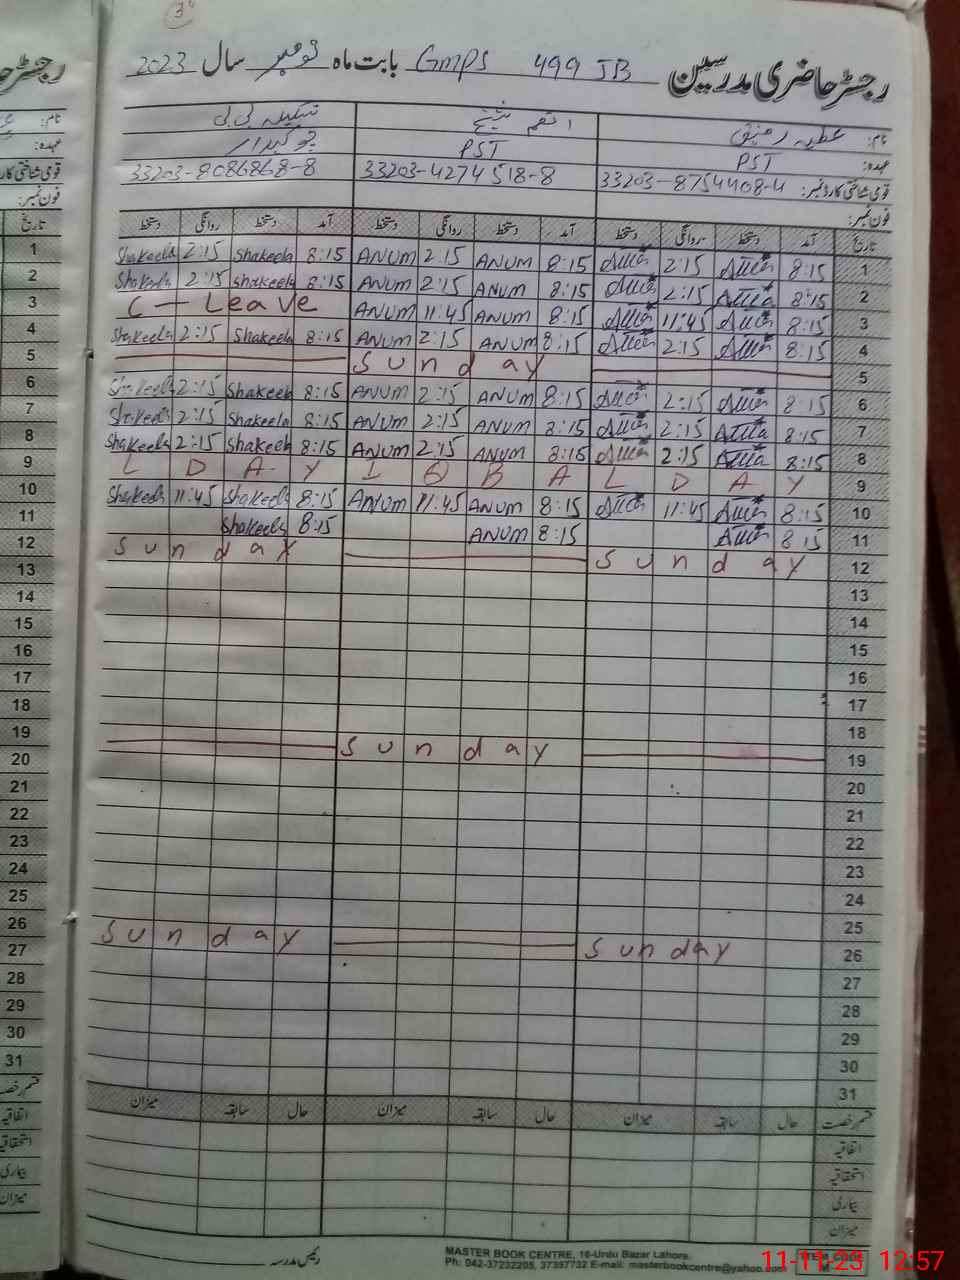 رجسٹر حاضری مدرسین 499 JB GMPS بابت ماہ نومبر سال 2023
نام: عطیہ رفیق انعم شکیلہ بی بی
عہدہ: PST PST چوکیدار
قومی شناختی کارڈ نمبر: 33203-8754408-4 33203-4274518-8 33203-8086868-8
فون نمبر:
تاریخ آمد دستخط روانگی دستخط آمد دستخط روانگی دستخط آمد دستخط روانگی دستخط
1 Shakeela 2:15 Shakeela 8:15 ANUM 2:15 ANUM 8:15 Attia 2:15 Attia 8:15 1
2 Shakeela 2:15 Shakeela 8:15 ANUM 2:15 ANUM 8:15 Attia 2:15 Attia 8:15 2
3 C - Leave ANUM 11:45 ANUM 8:15 Attia 11:45 Attia 8:15 3
4 Shakeela 2:15 Shakeela 8:15 ANUM 2:15 ANUM 8:15 Attia 2:15 Attia 8:15 4
5 Sunday 5
6 Shakeela 2:15 Shakeela 8:15 ANUM 2:15 ANUM 8:15 Attia 2:15 Attia 8:15 6
7 Shakeela 2:15 Shakeela 8:15 ANUM 2:15 ANUM 8:15 Attia 2:15 Attia 8:15 7
8 Shakeela 2:15 Shakeela 8:15 ANUM 2:15 ANUM 8:15 Attia 2:15 Attia 8:15 8
9 L D A Y I Q B A L D A Y 9
10 Shakeela 11:45 Shakeela 8:15 ANUM 11:45 ANUM 8:15 Attia 11:45 Attia 8:15 10
11 Shakeela 8:15 ANUM 8:15 Attia 8:15 11
12 Sunday Sunday 12
13 13
14 14
15 15
16 16
17 17
18 18
19 Sunday 19
20 20
21 21
22 22
23 23
24 24
25 25
26 Sunday Sunday 26
27 27
28 28
29 29
30 30
31 31
قسم رخصت حال سابقہ میزان حال سابقہ میزان حال سابقہ میزان
اتفاقیہ
استحقاقیہ
بیماری
میزان
رئیس مدرسہ
MASTER BOOK CENTRE, 16-Urdu Bazar Lahore.
Ph: 042-37232205, 37357732 E-mail: masterbookcentre@yahoo.com
ITEM CODE
11-11-23 12:57